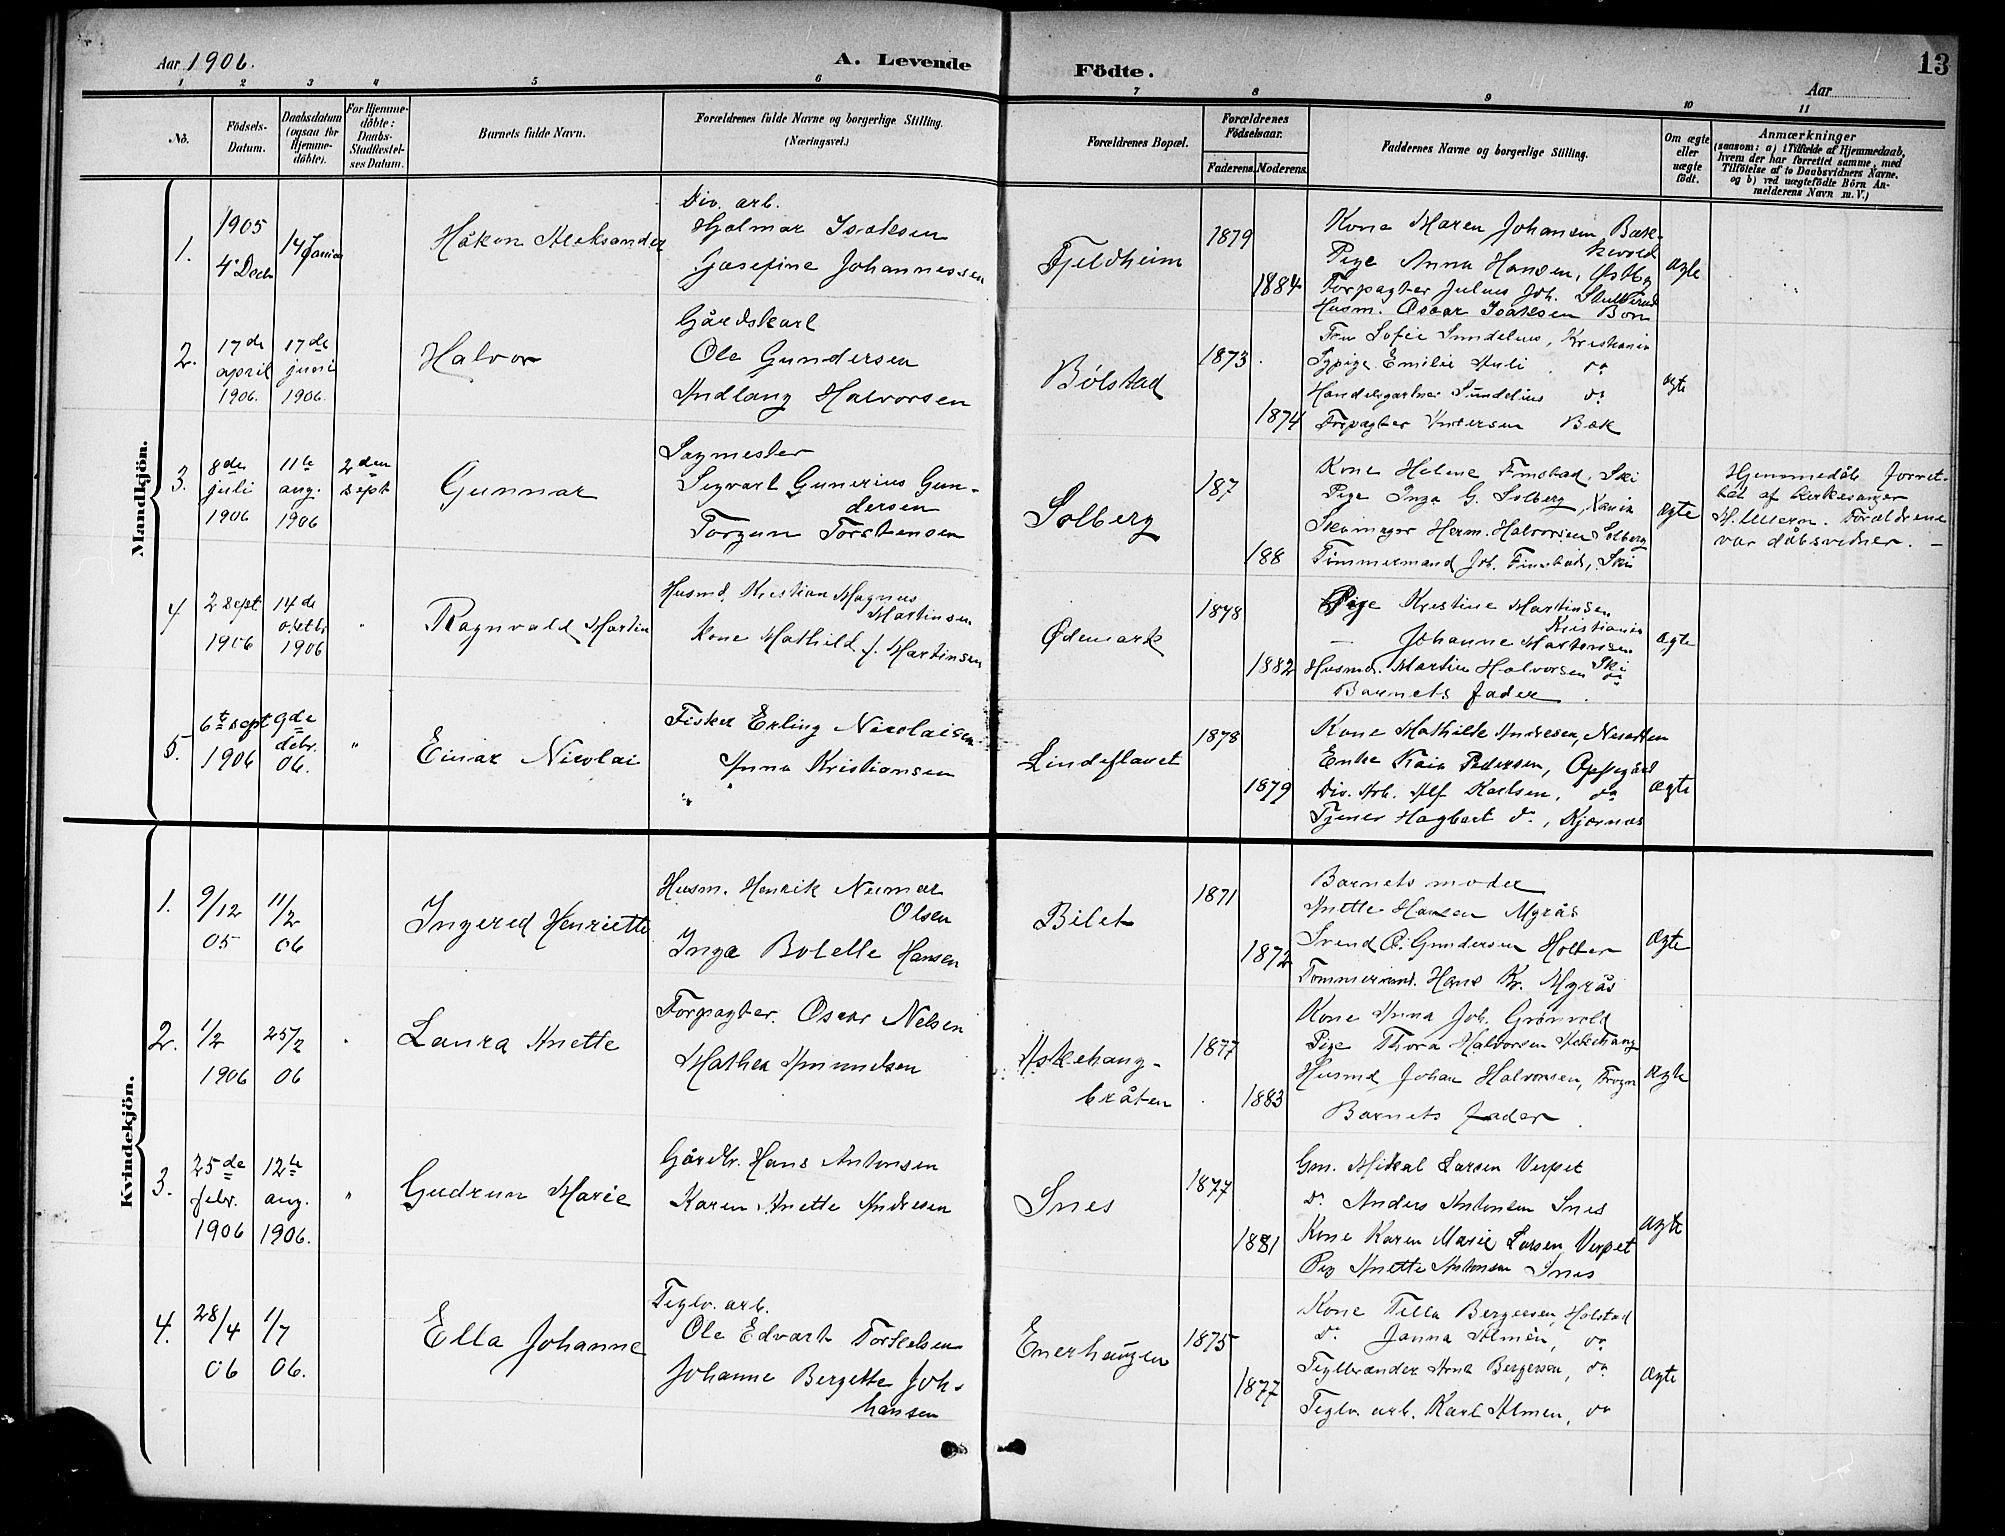 Aar 1906.
A. Levende
Födte.
13
Aar
1 2 3 4 5 6 7 8 9 10 11
No.
Födsels-
Datum.
Daabsdatum
(ogsaa for
Hjemme-
döbte).
For Hjemme-
döbte:
Daabs-
Stadfæstel-
ses Datum.
Barnets fulde Navn.
Forældrenes fulde Navne og borgerlige Stilling.
(Næringsvei.)
Forældrenes Bopæl.
Forældrenes
Födselsaar.
Faderens. Moderens.
Faddernes Navne og borgerlige Stilling.
Om ægte
eller
uægte
födt.
Anmærkninger
(saasom: a) i Tilfælde af Hjemmedaab,
hvem der har forrettet samme, med
Tilföielse af to Daabsvidners Navne.
og b) ved uægtefödte Börn An-
melderens Navn m. V.)
Mandkjön.
1.
1905
4 Decb
14 Januar
Håkon Aleksander
Div. arb.
Hjalmar Isaksen
Josefine Johannessen
Fjeldheim
1879
1884
Kone Maren Johansen Bæk-
kevold
Pige Anna Hansen,
Forpagter Julius Joh.
Husm. Oscar Isaksen Bonn
ægte
2.
17de
april
1906.
17de
juni
1906.
Halvor
Gårdskarl
Ole Gundersen
Andlaug Halvorsen
Bölstad
1873
1874
Fru Sofie Sundelius, Kristiania
Sypige Emilie Huli do
Handelsgartner Sundelius do
Forpagter Andersen Bæk
ægte
3.
8de
juli
1906
11te
aug.
1906
2den
sept
Gunnar
Sagmester
Sigvart Gunerius Gun-
dersen
Torgun Torstensen
Solberg
187
188
Kone Helene Finstad, Ski
Pige Inga G. Solberg, Kania
Skomager Herm. Halvorsen Solberg
Tömmermand Joh. Finstad, Ski
ægte
Hjemmedåb forret-
tet af kirkesanger
Forældrene
var dåbsvidner. —
4
2 sept
1906
14de
oktb
1906
"
Ragnvald Martin
Husmd. Kristian Magnus
Martinsen
Kone Mathild J. Martinsen
Ödemark
1878
1882
Pige Kristine Martinsen
Kristiania
— Johanne Martinsen
Ski
Husmd. Martin Halvorsen do
Barnets fader
ægte
5.
6te sept
1906
9de
debr.
06.
"
Einar Nicolai
Fisker Erling Nicolaisen
" Anna Kristiansen
Lindeflaaet
1878
1879
Kone Mathilde Andresen, Nesodden
Enke Kaia Pedersen, Opsegård
Div. Arb. Alf Karlsen, do
Tjener Hagbart do, Kjærnes
ægte
Kvindekjön.
1.
9/12
05
11/2
06
Ingered Henriette
Husm. Henrik Numar
Olsen
Inga Botelle Hansen
Bilet
1871
1872
Barnets moder
Anette Hansen Myrås
Svend O. Gundersen Holter
Tommermd. Hans Kr. Myrås
ægte
2.
1/2
1906
25/2
06
"
Laura Anette
Forpagter. Oscar Nelsen
Mathea Amundsen
Askehaug-
bråten
1877
1883
Kone Anna Joh. Grönvold
Pige Thora Halvorsen Askehaug
Husmd Johan Halvorsen, Frogn
Barnets fader
ægte
3.
25de
febr.
1906
12te
aug.
1906.
"
Gudrun Marie
Gårdbr. Hans Antonsen
Karen Anette Andresen
Snes
1877
1881
Gm. Mikal Larsen Verpet
do. Anders Antonsen Snes
Kone Karen Marie Larsen Verpet
Pig Anette Antonsen Snes
ægte
4.
28/4
06
1/7
06.
Ella Johanne
Teglv. arb.
Ole Edvart Torkelsen
Johanne Bergette Joh-
hansen
Enerhaugen
1875
1877
Kone Tilla Bergersen, Holstad
do. Janna Almén, do
Teglbrænder Arnt Bergersen, do
Teglv. arb. Karl Almen, do
ægte